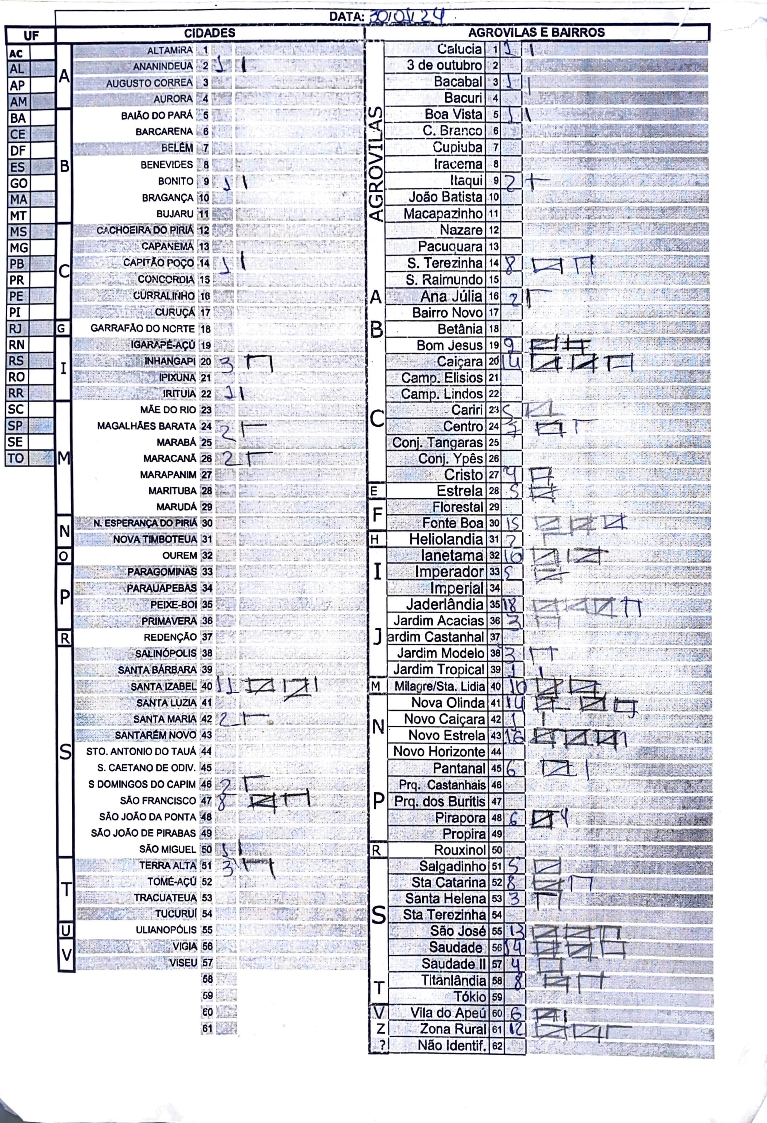 DATA: 30/01/24
UF CIDADES AGROVILAS E BAIRROS
AC
AL
AP
AM
BA
CE
DF
ES
GO
MA
MT
MS
MG
PB
PR
PE
PI
RJ
RN
RS
RO
RR
SC
SP
SE
TO
A
ALTAMIRA 1
ANANINDEUA 2 1
AUGUSTO CORREA 3
AURORA 4
B
BAIÃO DO PARÁ 5
BARCARENA 6
BELÉM 7
BENEVIDES 8
BONITO 9 1
BRAGANÇA 10
BUJARU 11
C
CACHOEIRA DO PIRIÁ 12
CAPANEMA 13
CAPITÃO POÇO 14 1
CONCORDIA 15
CURRALINHO 16
CURUÇÁ 17
G
GARRAFÃO DO NORTE 18
I
IGARAPÉ-AÇÚ 19
INHANGAPI 20 3
IPIXUNA 21
IRITUIA 22 1
M
MÃE DO RIO 23
MAGALHÃES BARATA 24 2
MARABÁ 25
MARACANÃ 26 2
MARAPANIM 27
MARITUBA 28
MARUDÁ 29
N
N. ESPERANÇA DO PIRIÁ 30
NOVA TIMBOTEUA 31
O
OUREM 32
P
PARAGOMINAS 33
PARAUAPEBAS 34
PEIXE-BOI 35
PRIMAVERA 36
R
REDENÇÃO 37
S
SALINÓPOLIS 38
SANTA BÁRBARA 39
SANTA IZABEL 40 11
SANTA LUZIA 41
SANTA MARIA 42 2
SANTARÉM NOVO 43
STO. ANTONIO DO TAUÁ 44
S. CAETANO DE ODIV. 45
S DOMINGOS DO CAPIM 46 2
SÃO FRANCISCO 47 8
SÃO JOÃO DA PONTA 48
SÃO JOÃO DE PIRABAS 49
SÃO MIGUEL 50 1
T
TERRA ALTA 51 3
TOMÉ-AÇÚ 52
TRACUATEUA 53
TUCURUÍ 54
U
ULIANÓPOLIS 55
V
VIGIA 56
VISEU 57
58
59
60
61
AGROVILAS
Calucia 1 1
3 de outubro 2
Bacabal 3 1
Bacuri 4
Boa Vista 5 1
C. Branco 6
Cupiuba 7
Iracema 8
Itaqui 9 2
João Batista 10
Macapazinho 11
Nazare 12
Pacuquara 13
S. Terezinha 14 8
S. Raimundo 15
A
Ana Júlia 16 2
Bairro Novo 17
B
Betânia 18
Bom Jesus 19 9
C
Caiçara 20 14
Camp. Elisios 21
Camp. Lindos 22
Cariri 23 5
Centro 24
Conj. Tangaras 25
Conj. Ypês 26
Cristo 27 4
E
Estrela 28 5
F
Florestal 29
Fonte Boa 30 15
H
Heliolandia 31 2
I
Ianetama 32 10
Imperador 33 5
Imperial 34
J
Jaderlândia 35 18
Jardim Acacias 36 3
ardim Castanhal 37
Jardim Modelo 38 3
Jardim Tropical 39 1
M
Milagre/Sta. Lidia 40 10
N
Nova Olinda 41 14
Novo Caiçara 42 1
Novo Estrela 43 16
Novo Horizonte 44
P
Pantanal 45 6
Prq. Castanhais 46
Prq. dos Buritis 47
Pirapora 48 6
Propira 49
R
Rouxinol 50
S
Salgadinho 51 5
Sta Catarina 52 8
Santa Helena 53 3
Sta Terezinha 54
São José 55 13
Saudade 56 14
Saudade II 57 4
T
Titanlândia 58 8
Tókio 59
V
Vila do Apeú 60 6
Z
Zona Rural 61 12
?
Não Identif. 62